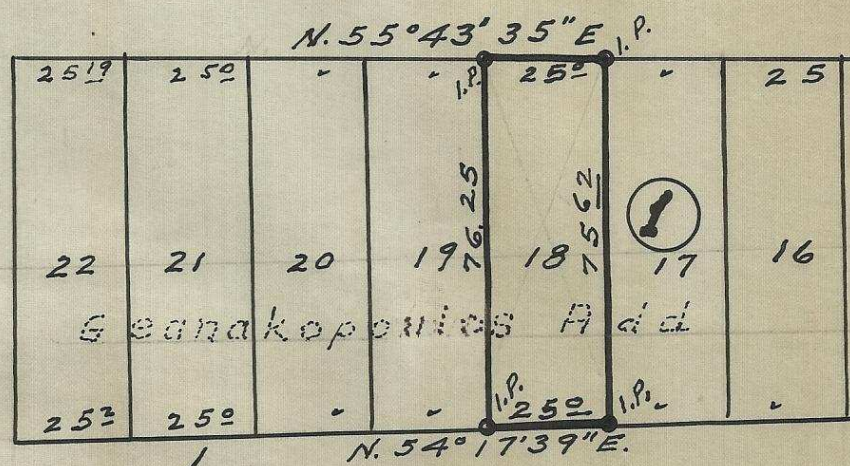 N. 55° 43' 35" E
I.P.
25 19 25 0 " " I.P. 25 0 " 25
76.25
75 62
1
22 21 20 19 18 17 16
Geanakopoulos Add
I.P. I.P.
25 2 25 0 " " 25 0 " "
N. 54° 17' 39" E.